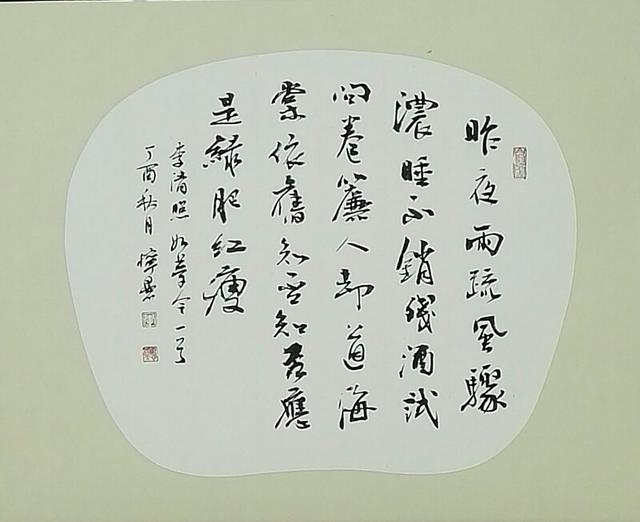 昨夜雨疏風驟
濃睡不銷殘酒試
问卷簾人却道海
棠依舊知否知否應
是綠肥红瘦
李清照如夢令一首
丁酉秋月